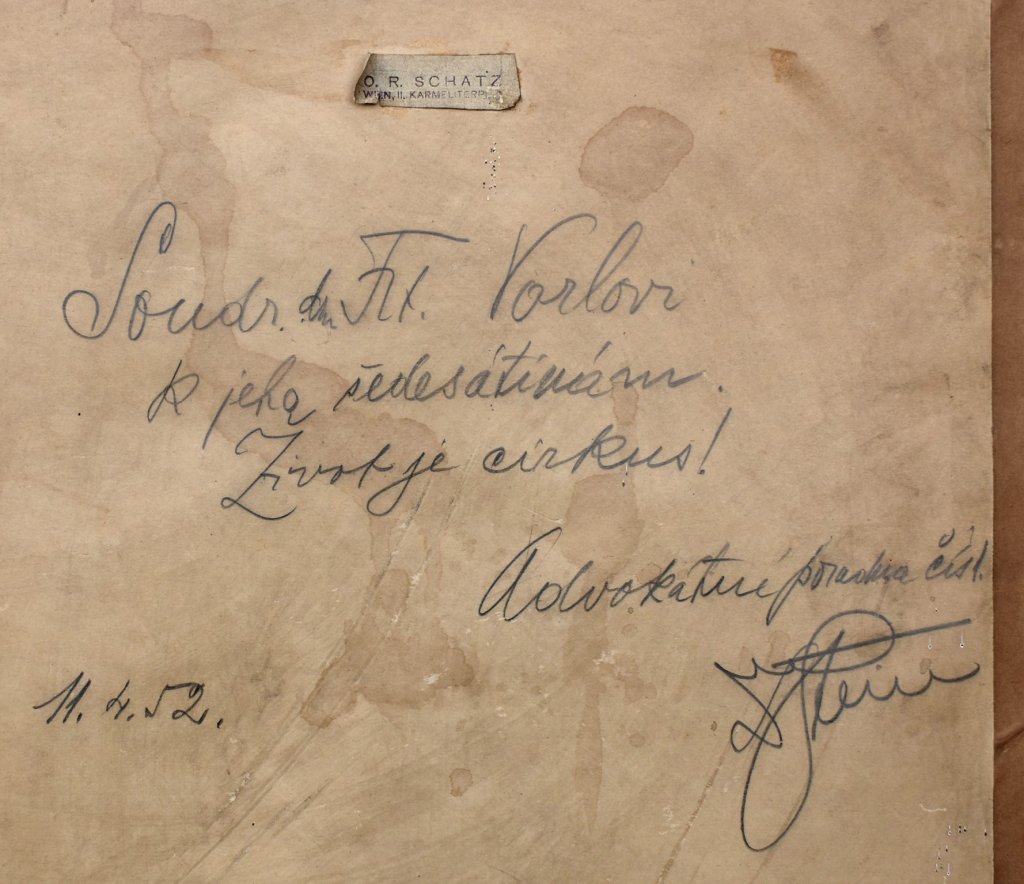 O. R. SCHATZ
WIEN, II. KARMELITERPL.
Soudr. Fr. Vorlovi
k jeho šedesátinám.
Život je cirkus!
Advokátní poradna čís1.
11. 4. 52.